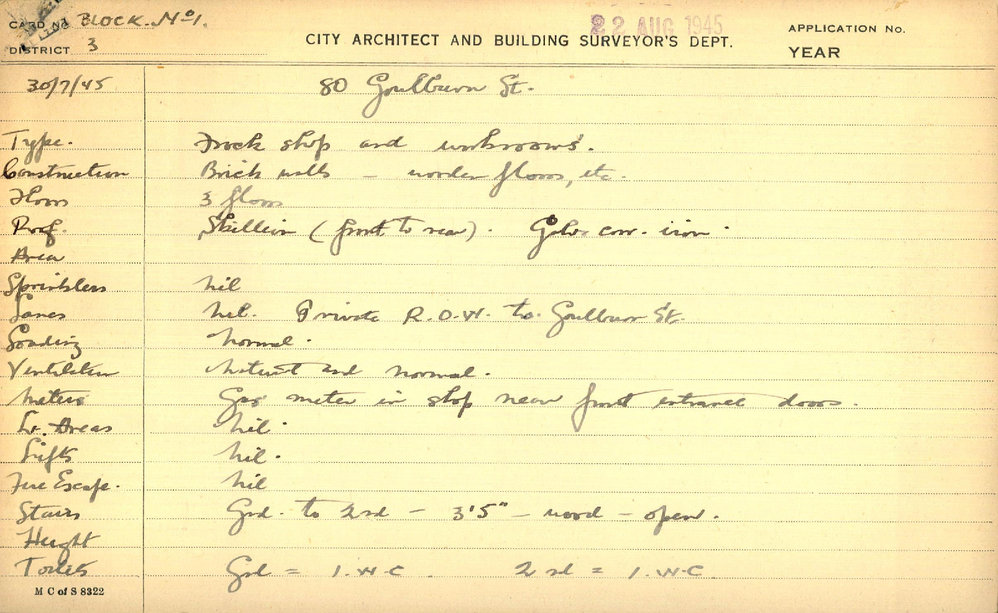 CARD No BLOCK. No 1. 22 AUG 1945 APPLICATION No.
DISTRICT 3 CITY ARCHITECT AND BUILDING SURVEYOR'S DEPT. YEAR
30/7/45 80 Goulburn St.
Type. Frock shop and workrooms.
Construction Brick walls – wooden floors, etc.
Floors 3 floors
Roof. Skillion (front to rear). Galv. corr. iron.
Area
Sprinklers nil
Lanes nil. Private R.O.W. to Goulburn St.
Loading normal.
Ventilation natural and normal.
Meters Gas meter in shop near front entrance doors.
Lt. Areas nil.
Lifts nil.
Fire Escape. nil
Stairs Grd. to 2nd – 3'5" – wood – open.
Height
Toilets Grd = 1.W.C. 2nd = 1.W.C.
M C of S 8322